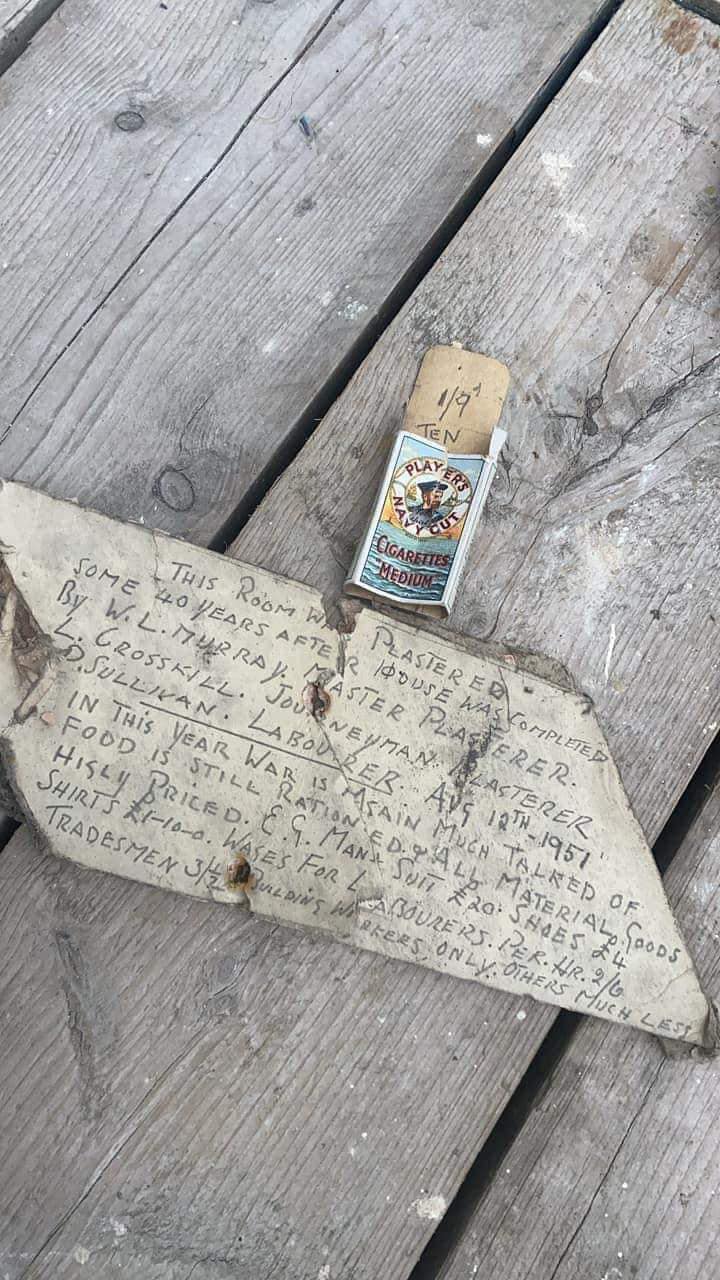 1/9ᵈ
TEN
PLAYER'S
NAVY CUT
CIGARETTES
"MEDIUM"
THIS ROOM PLASTERED
SOME 40 YEARS AFTER HOUSE WAS COMPLETED
BY W. L. MURRAY. MASTER PLASTERER.
L. CROSSKILL. JOURNEYMAN. PLASTERER
D. SULLIVAN. LABOURER. AUG 12TH - 1951
IN THIS YEAR WAR IS AGAIN MUCH TALKED OF
FOOD IS STILL RATIONED & ALL MATERIAL GOODS
HIGLY PRICED. E.G. MANS SUIT £20. SHOES £4
SHIRTS £1-10-0. WAGES FOR LABOURERS. PER. HR. 2/6
TRADESMEN BUILDING WORKERS, ONLY. OTHERS MUCH LESS